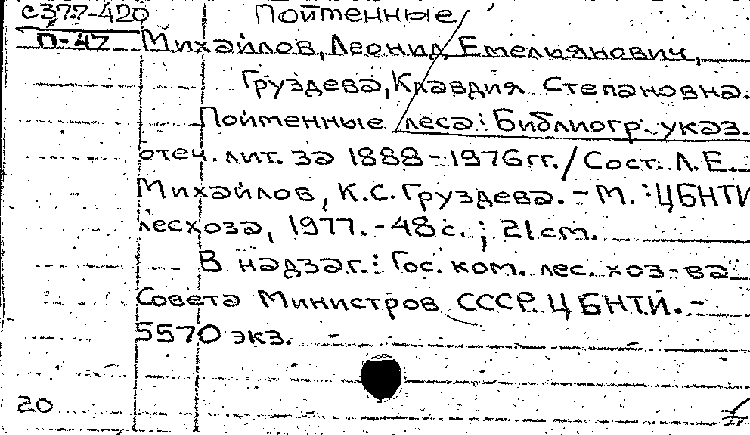 С377-420 Пойменные
П-47 Михайлов, Леонид Емельянович,
Груздева, Клавдия Степановна.
Пойменные леса: Библиогр. указ.
отеч. лит. за 1888-1976 гг. / Сост. Л.Е.
Михайлов, К.С. Груздева. - М.: ЦБНТИ
лесхоза, 1977. - 48 с.; 21 см.
В надзаг.: Гос. ком. лес. хоз-ва
Совета Министров СССР. ЦБНТИ. -
5570 экз.
20